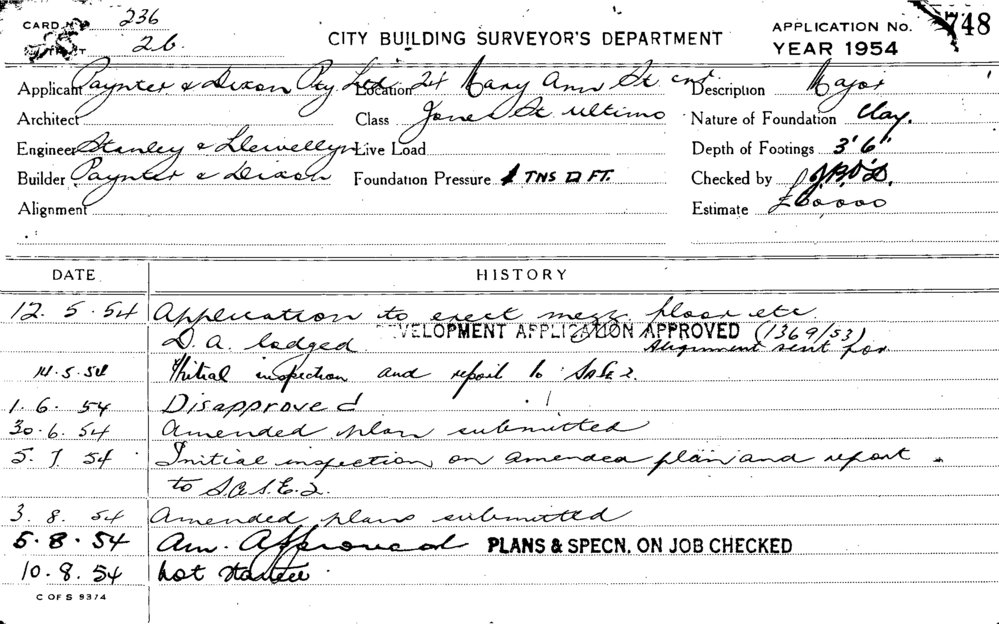 CARD No 236
26.
CITY BUILDING SURVEYOR'S DEPARTMENT
APPLICATION No. 748
YEAR 1954
Applicant Paynter & Dixon Pty. Ltd. Location 24 Mary Ann St cnr Description Major
Architect Class Jones St. Ultimo Nature of Foundation Clay.
Engineer Stanley & Llewellyn Live Load Depth of Footings 3'6"
Builder Paynter & Dixon Foundation Pressure 1 TNS □ FT. Checked by
Alignment Estimate
DATE HISTORY
12. 5. 54 Application to erect mezz. floor etc.
D. A. lodged DEVELOPMENT APPLICATION APPROVED (1369/53)
Alignment sent for
14.5.54 Initial inspection and report to
1. 6. 54 Disapproved
30. 6. 54 Amended plan submitted
5. 7. 54 Initial inspection on amended plan and report
to S.A.S.E. 2.
3. 8. 54 Amended plans submitted
5. 8. 54 Am. Approved PLANS & SPECN. ON JOB CHECKED
10. 8. 54 Not started
C OF S 9374